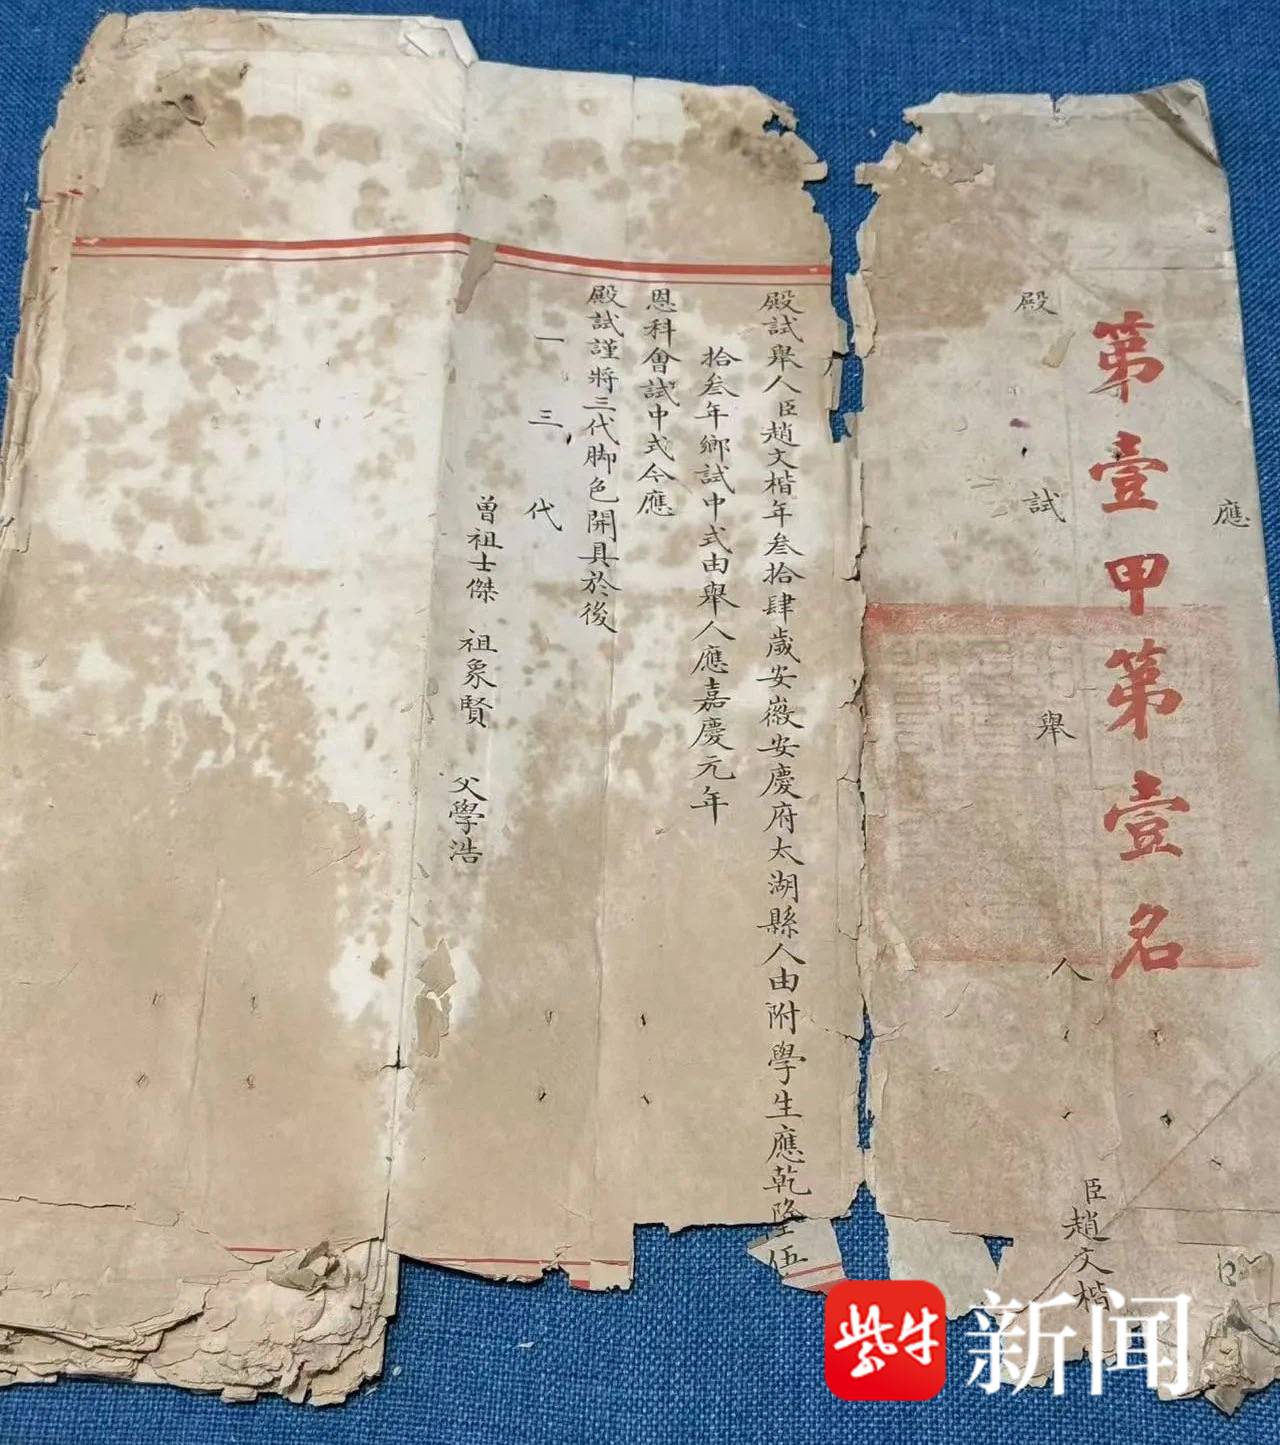 應
第壹甲第壹名
殿試舉人
臣趙文楷
殿試舉人臣趙文楷年叁拾肆歲安徽安慶府太湖縣人由附學生應乾隆伍
拾叁年鄉試中式由舉人應嘉慶元年
恩科會試中式今應
殿試謹將三代脚色開具於後
一三代
曾祖士傑 祖象賢 父學浩
紫牛新闻